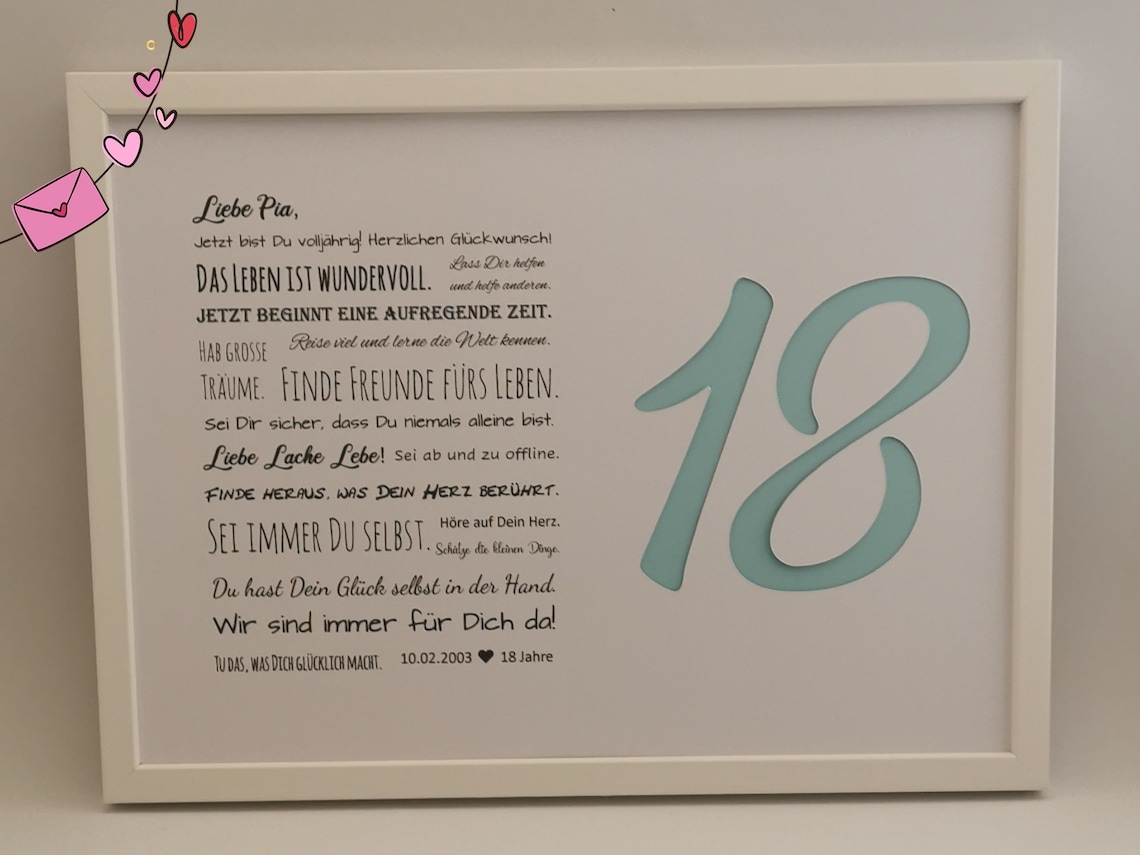 Liebe Pia,
Jetzt bist Du volljährig! Herzlichen Glückwunsch!
Das Leben ist wundervoll.
Lass Dir helfen
und helfe anderen.
JETZT BEGINNT EINE AUFREGENDE ZEIT.
Hab große
Träume.
Reise viel und lerne die Welt kennen.
Finde Freunde fürs Leben.
Sei Dir sicher, dass Du niemals alleine bist.
Liebe Lache Lebe! Sei ab und zu offline.
Finde heraus, was Dein Herz berührt.
Sei immer Du selbst.
Höre auf Dein Herz.
Schätze die kleinen Dinge.
Du hast Dein Glück selbst in der Hand.
Wir sind immer für Dich da!
Tu das, was Dich glücklich macht. 10.02.2003 ♥ 18 Jahre
18